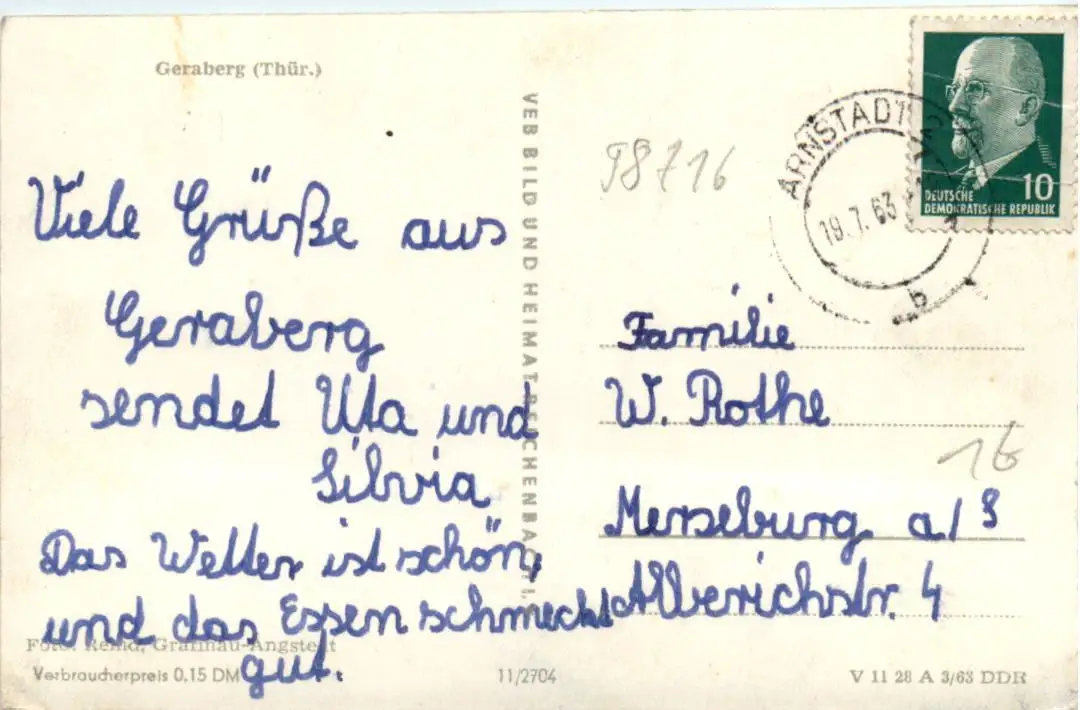 Geraberg (Thür.)
Viele Grüße aus
Geraberg
sendet Uta und
Silvia
Das Wetter ist schön,
und das Essen schmeckt
gut.
Foto: Remd, Gräfinau-Angstedt
Verbraucherpreis 0,15 DM
VEB BILD UND HEIMAT REICHENBACH I. V.
11/2704
98716
ARNSTADT
19.7.63
b
10
DEUTSCHE
DEMOKRATISCHE REPUBLIK
Familie
W. Rothe
16
Merseburg a/S
Alberichstr. 4
V 11 28 A 3/63 DDR